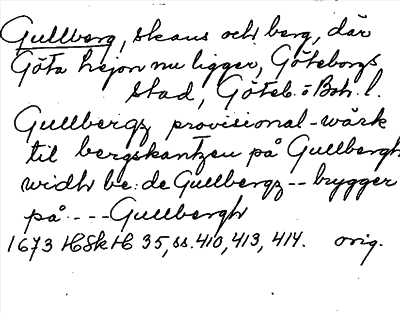 Gullberg, skans och berg, där
Göta lejon nu ligger, Göteborgs
stad, Göteb. o Boh. l.
Gullbergz provisional-wärk
til bergskantzen på Gullbergh
widh be:de Gullbergz -- brygger
på ---- Gullbergh
1673 HSkH 35, ss. 410, 413, 414. orig.